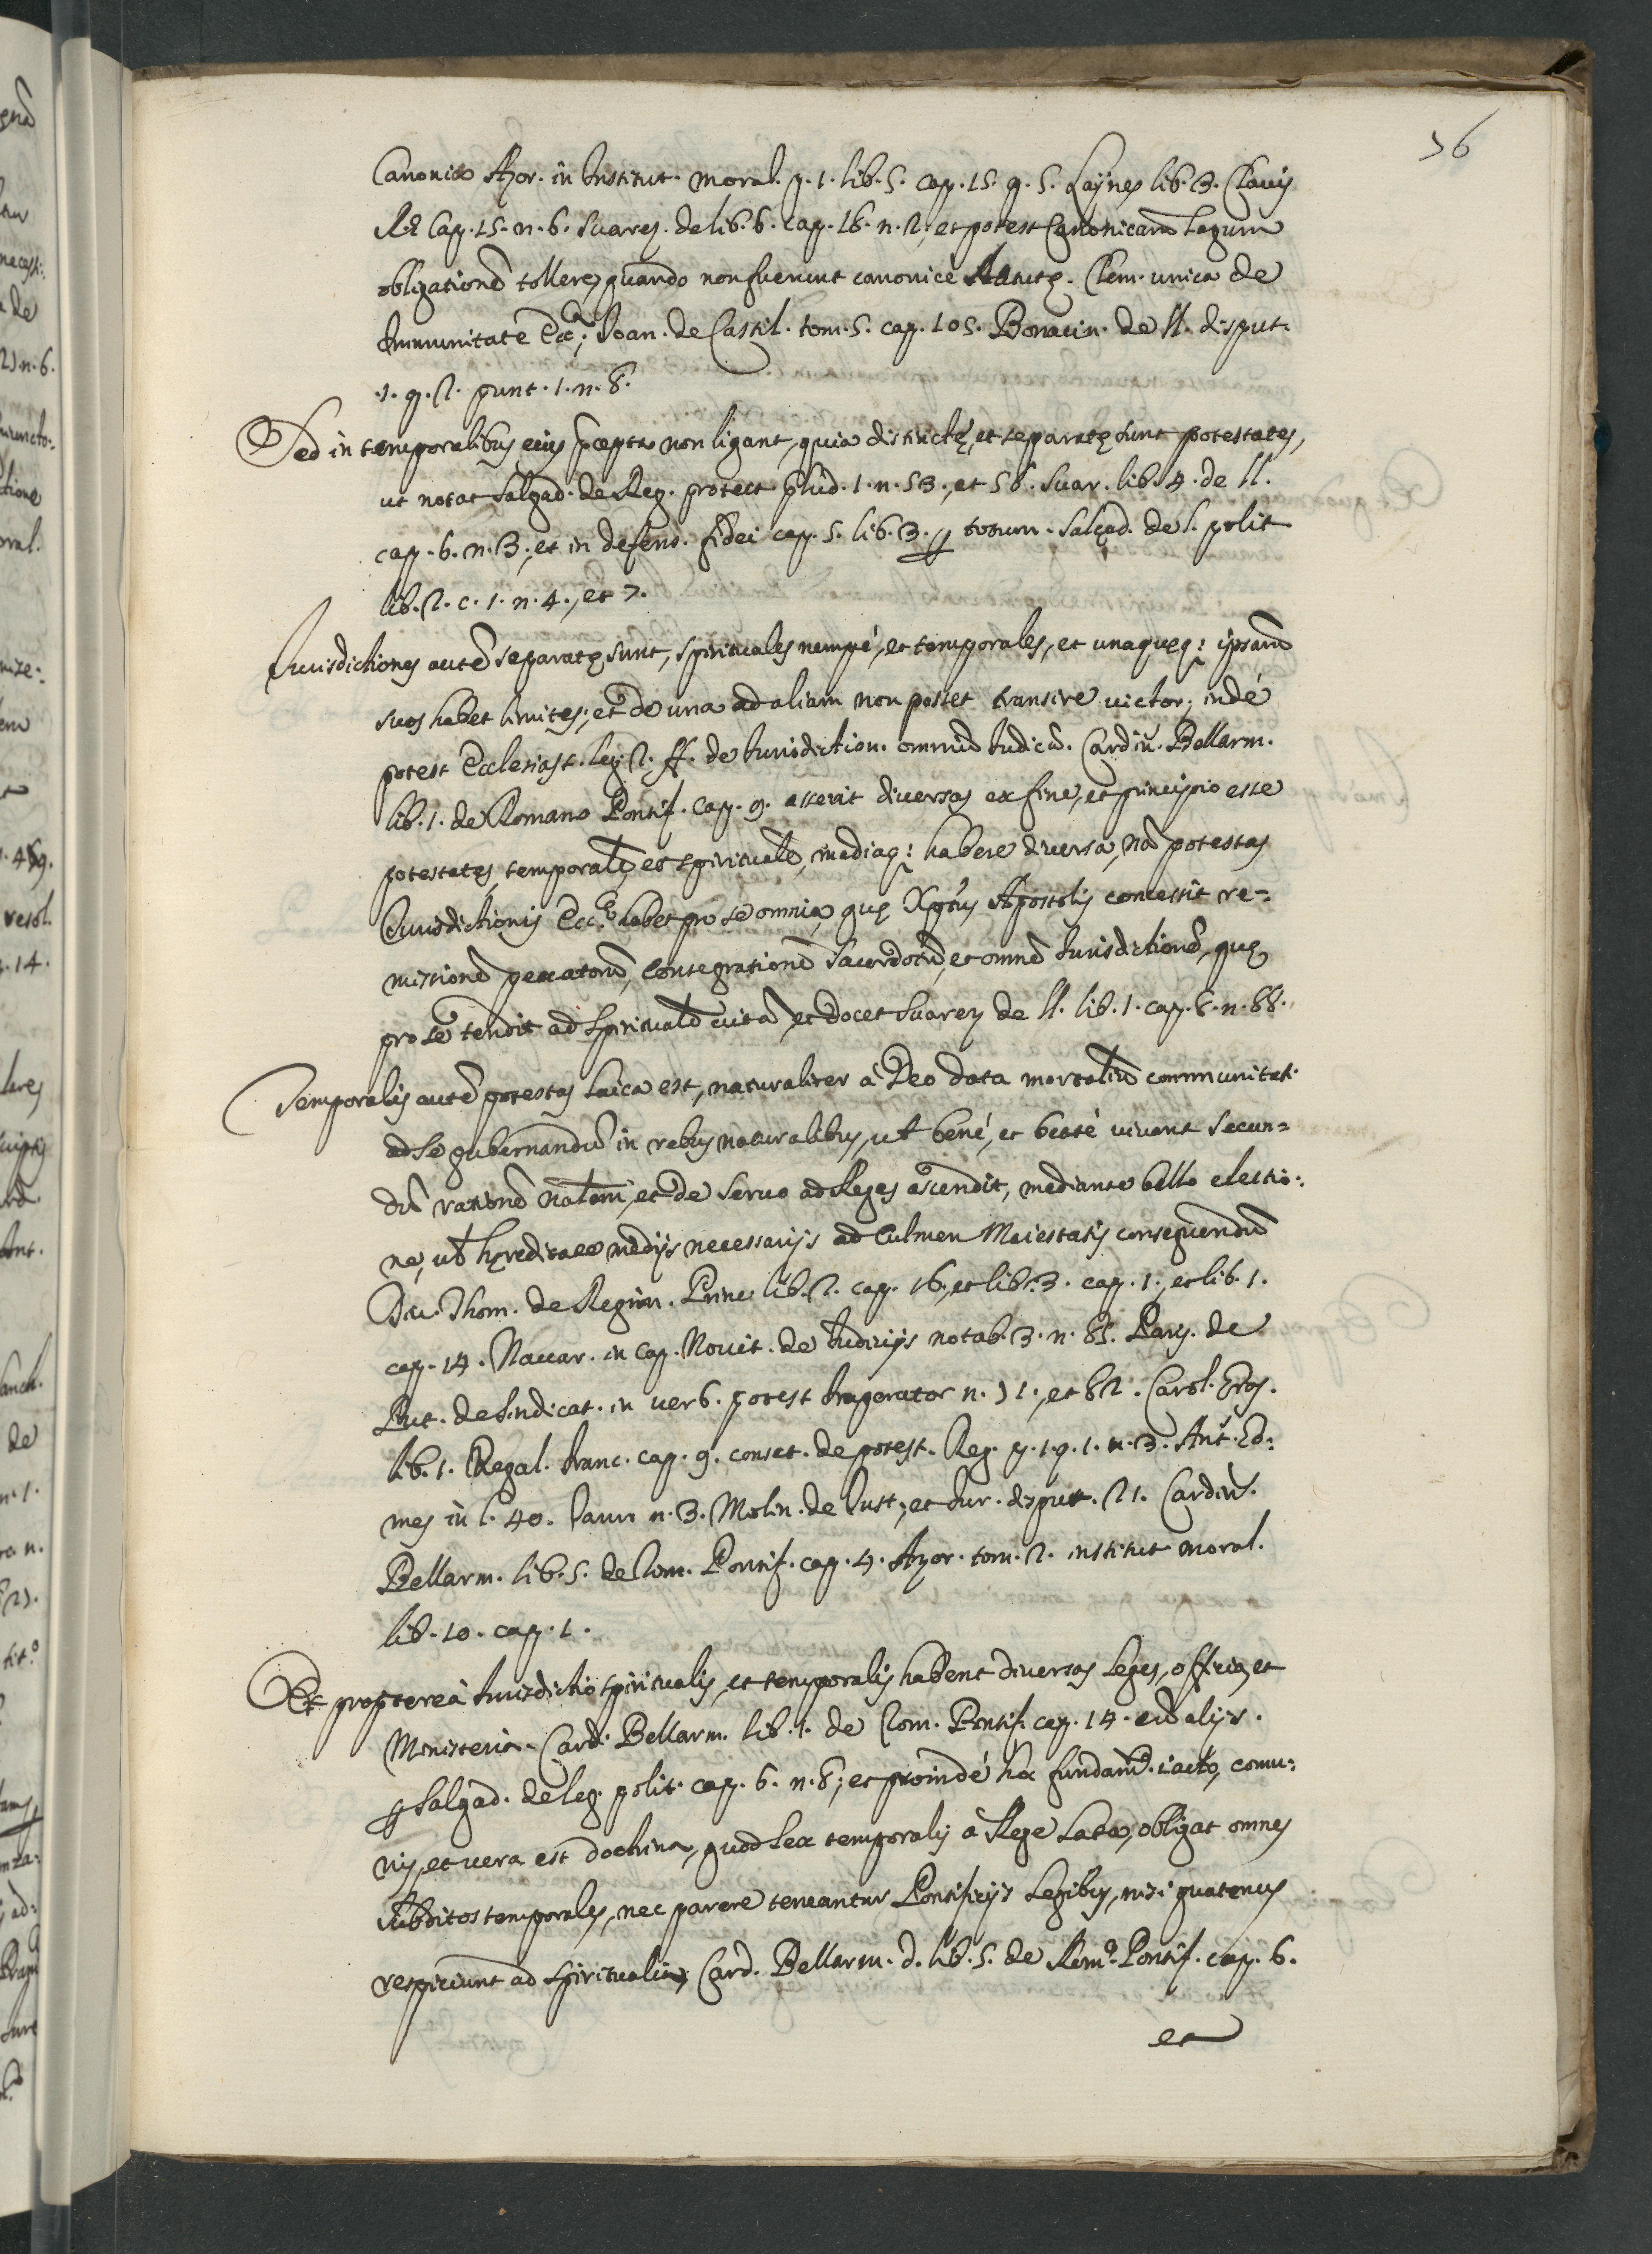 36
Canonico Azor. in Institut. moral. p. 1. lib. 5. cap. 15. q. 5. Laynes lib. 3. Clavis
Cap. 15. n. 6. Suarez. de lib. 6. cap. 16. n. 2, et potest Canonicarũ Legum
obligationẽ tollere, quando non fuerunt canonicè statutę. Clem. unica de
Immunitate Ecc.ª; Ioan. de Castil. tom. 5. cap. 105. Bonacin. de ll. disput.
1. q. 2. punt. 1. n. 8.
Sed in temporalibus eius p̃cepta non ligant, quia distinctę, et separatę sunt potestates,
ut notat Salgad. de Reg. protect. p̃lud. 1. n. 53., et 58. Suar. lib. 4. de ll.
cap. 6. n. 3., et in defens. fidei cap. 5. lib. 3. p totum. Salgad. de l. polit
lib. 2. c. 1. n. 4., et 7.
Iurisdictiones autẽ separatę sunt, spirituales nempé, et temporales, et unaqueq: ipsarũ
suos habet limites; et de una ad aliam non potest transire victor, indé
potest Ecclesiast. leg. 2. ff. de Iurisdiction. omniũ Iudicũ. Cardin. Bellarm.
lib. 1. de Romano Pontif. cap. 9. asserit diversas ex fine, et principio esse
potestates, temporalẽ, et spiritualẽ, mediaq: habere diversa, nã potestas
Iurisdictionis Ecc.ª habet pro se omnia, quę Xp̃tus Apostolis concessit re=
missionẽ peccatorũ, Consegrationẽ Sacerdotũ, et omnẽ Iurisdictionẽ, quę
pro se tendit ad Spiritualẽ vitã, et docet Suarez de ll. lib. 1. cap. 8. n. 88.
Temporalis autẽ potestas laica est, naturaliter á Deo data mortaliũ communitati
ad se gubernandũ in rebus naturalibus, ut bené, et beaté vivant secun=
dũ rationẽ nal̃em, et de servo ad Reges ascendit, mediante bello electio:
ne, ut hęreditate medijs necessarijs ad Culmen Maiestatis consequendũ
Div. Thom. de Regim. Princ lib. 2. cap. 16., et lib. 3. cap. 1., et lib. 1.
cap. 14. Navar. in cap. Novit. de Iudicijs notab. 3. n. 85. Paris. de
Put. de Sindicat. in verb. potest Imperator n. 31., et 82. Carol. Gras.
lib. 1. Regal. Franc. cap. 9. conset. de potest. Reg. p. 1. q. 1. n. 3. Ant. Go:
mes in l. 40. Tauri n. 3. Molin. de Iust., et Iur. disput. 21. Cardin.
Bellarm. lib. 5. de Rom. Pontif. cap. 4. Azor. tom. 2. institut moral.
lib. 10. cap. 1.
Et proptereà Iurisdictio Spiritualis, et temporalis habent diversas Leges, officia, et
Ministeria. Card. Bellarm. lib. 1. de Rom. Pontif. cap. 14. cũ alijs.
p Salgad. de leg. polit. cap. 6. n. 8; et proindé hoc fundam.to iacto, comu:
nis, et vera est doctrina, quod Lex temporalis á Rege Lata, obligat omnes
subditos temporales, nec parere teneantur Pontificijs Legibus, nisi quatenus
respiciunt ad spiritualia, Card. Bellarm. d. lib. 5. de Rom.º Pontif. cap. 6.
et